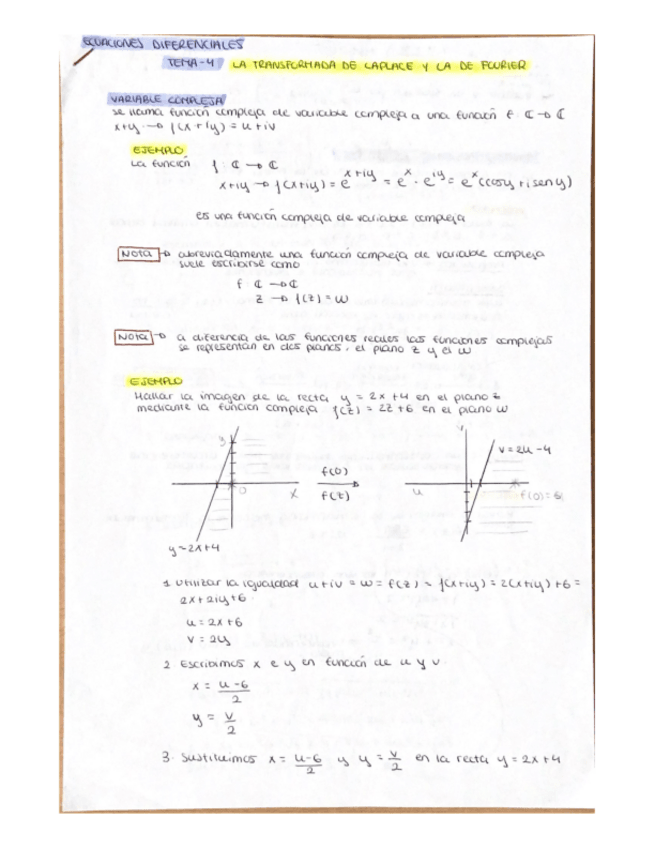 ECUACIONES DIFERENCIALES
TEMA-4 LA TRANSFORMADA DE LAPLACE Y LA DE FOURIER
VARIABLE COMPLEJA
se llama función compleja de variable compleja a una función f: ℂ → ℂ
x+iy → f(x+iy) = u+iv
EJEMPLO
La función f: ℂ → ℂ
x+iy → f(x+iy) = e^(x+iy) = e^x · e^(iy) = e^x (cosy + i seny)
es una función compleja de variable compleja
Nota → abreviadamente una función compleja de variable compleja
suele escribirse como
f: ℂ → ℂ
z → f(z) = w
Nota → a diferencia de las funciones reales las funciones complejas
se representan en dos planos, el plano z y el w
EJEMPLO
Hallar la imagen de la recta y = 2x + 4 en el plano z
mediante la función compleja f(z) = 2z + 6 en el plano w
y
x
0
y = 2x+4
f(0)
f(z)
v
u
v = 2u - 4
f(0) = 6
1. Utilizar la igualdad u+iv = w = f(z) = f(x+iy) = 2(x+iy) + 6 =
2x + 2iy + 6
u = 2x + 6
v = 2y
2. Escribimos x e y en función de u y v.
x = (u-6)/2
y = v/2
3. Sustituimos x = (u-6)/2 y y = v/2 en la recta y = 2x + 4